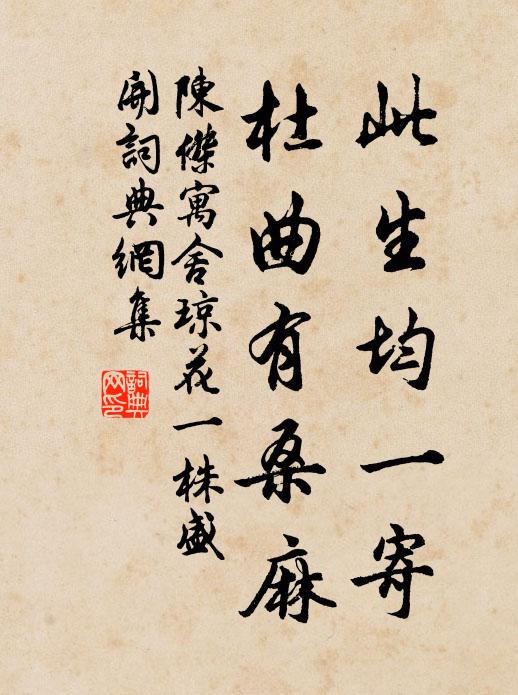 此生均一寄
杜曲有桑麻
陳傑寓舍琼花一株盛
開詞典網集
詞典
网印